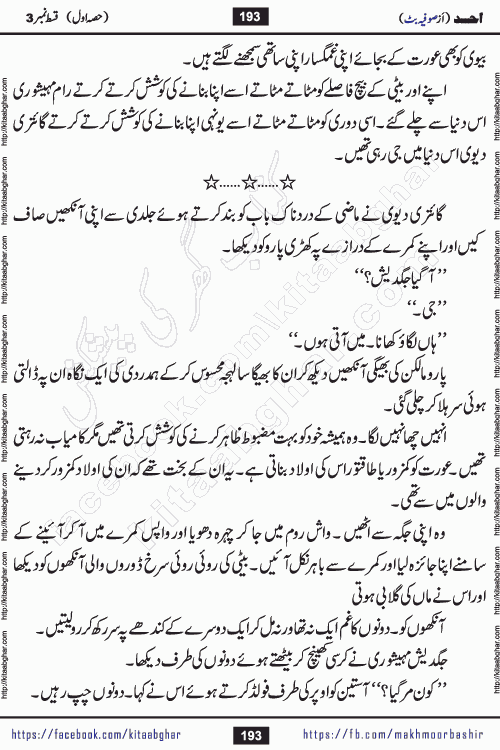 احد (از صوفیہ بٹ) 193 (حصہ اول) قسط نمبر 3
بیوی کو بھی عورت کے بجائے اپنی غمگسار اپنی ساتھی سمجھنے لگتے ہیں۔
اپنے اور بیٹی کے بیچ فاصلے کو مٹاتے مٹاتے اسے اپنا بنانے کی کوشش کرتے کرتے رام مہیشوری
اس دنیا سے چلے گئے۔ اسی دوری کو مٹاتے مٹاتے اسے یونہی اپنا بنانے کی کوشش کرتے کرتے گائتری
دیوی اس دنیا میں جی رہی تھیں۔
☆......☆......☆
گائتری دیوی نے ماضی کے دردناک باب کو بند کرتے ہوئے جلدی سے اپنی آنکھیں صاف
کیں اور اپنے کمرے کے درازے پہ کھڑی پارو کو دیکھا۔
’’آ گیا جگدیش؟‘‘
’’جی۔‘‘
’’ہاں لگاؤ کھانا۔ میں آتی ہوں۔‘‘
پارو مالکن کی بھیگی آنکھیں دیکھ کر ان کا بھیگا سا لہجہ محسوس کر کے ہمدردی کی ایک نگاہ ان پہ ڈالتی
ہوئی سر ہلا کر چلی گئی۔
انہیں اچھا نہیں لگا۔ وہ ہمیشہ خود کو بہت مضبوط ظاہر کرنے کی کوشش کرتی تھیں مگر کامیاب نہ رہتی
تھیں۔ عورت کو کمزور یا طاقتور اس کی اولاد بناتی ہے۔ یہ ان کے بخت تھے کہ ان کی اولاد کمزور کر دینے
والوں میں سے تھی۔
وہ اپنی جگہ سے اٹھیں۔ واش روم میں جا کر چہرہ دھویا اور واپس کمرے میں آ کر آئینے کے
سامنے اپنا جائزہ لیا اور کمرے سے باہر نکل آئیں۔ بیٹی کی روئی روئی سرخ ڈوروں والی آنکھوں کو دیکھا
اور اس نے ماں کی گلابی ہوتی
آنکھوں کو۔ دونوں کا غم ایک نہ تھا ورنہ مل کر ایک دوسرے کے کندھے پہ سر رکھ کر رو لیتیں۔
جگدیش مہیشوری نے کرسی کھینچ کر بیٹھتے ہوئے دونوں کی طرف دیکھا۔
’’کون مر گیا؟‘‘ آستین کو اوپر کی طرف فولڈ کرتے ہوئے اس نے کہا۔ دونوں چپ رہیں۔
https://facebook.com/kitaabghar 193 https://fb.com/makhmoorbashir
http://kitaabghar.com http://kitaabghar.com http://kitaabghar.com http://kitaabghar.com http://kitaabghar.com http://kitaabghar.com http://kitaabghar.com http://kitaabghar.com